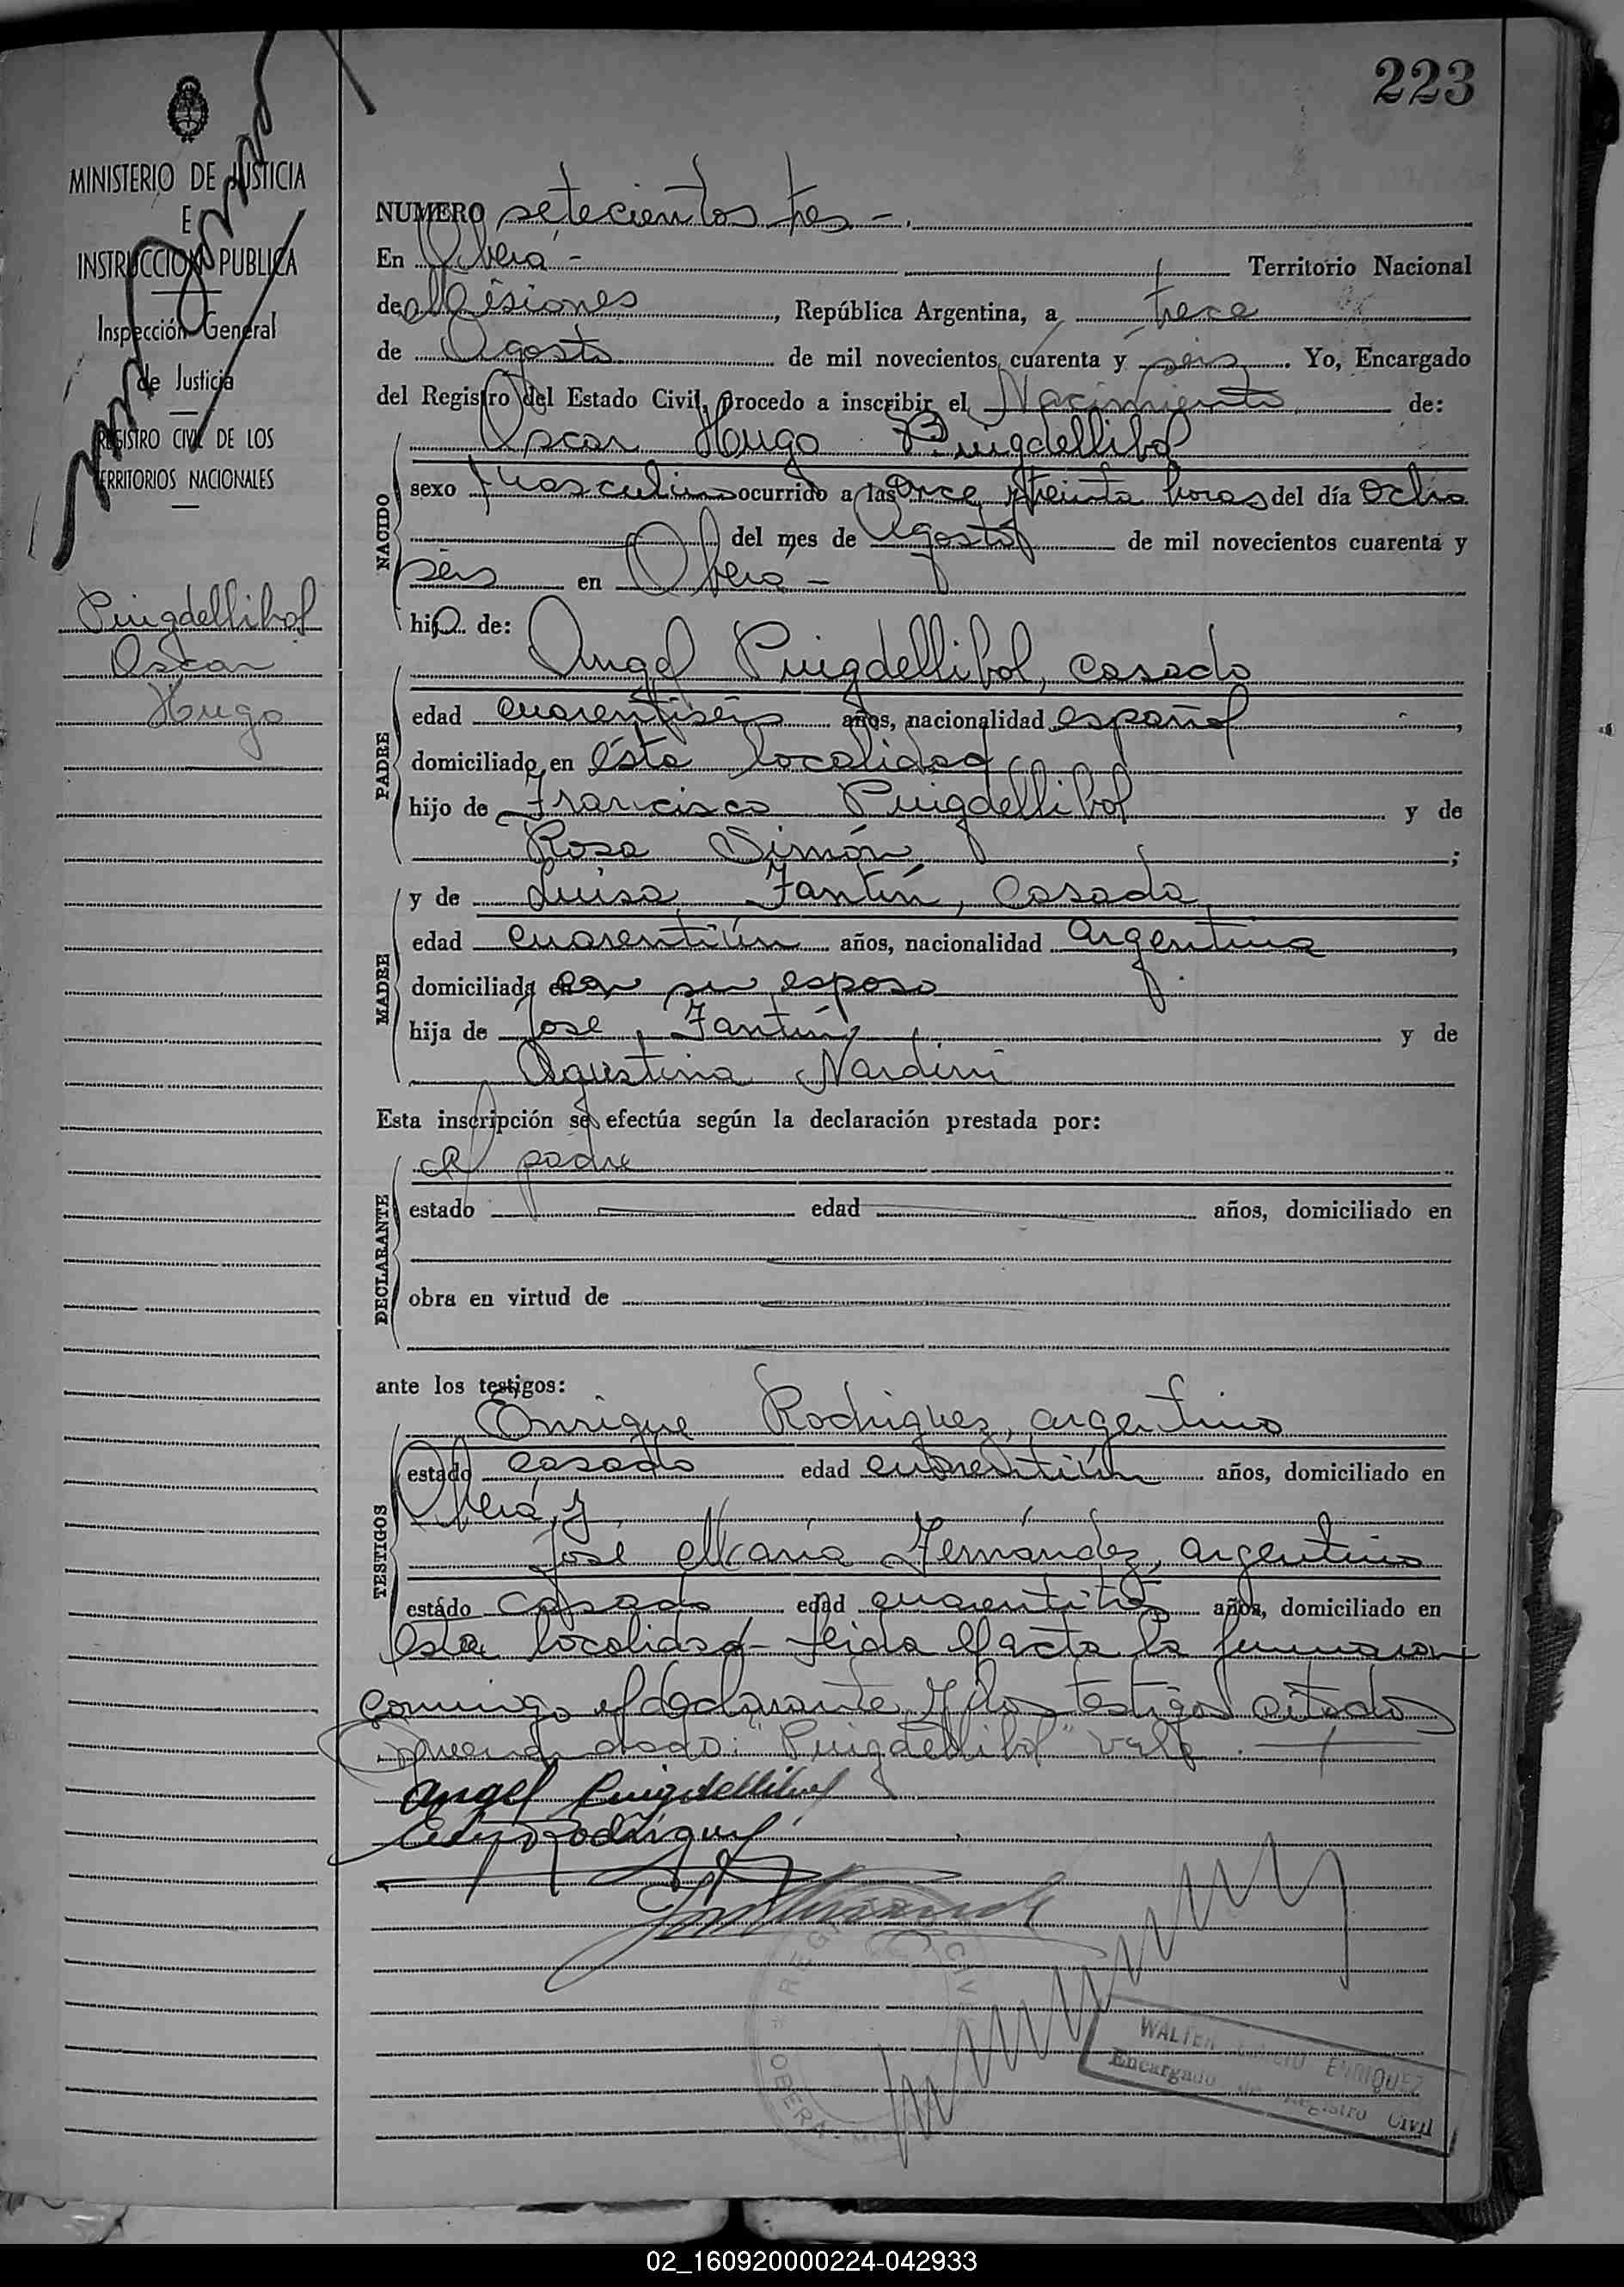 223
MINISTERIO DE JUSTICIA
E
INSTRUCCION PUBLICA
Inspección General
de Justicia
REGISTRO CIVIL DE LOS
TERRITORIOS NACIONALES
Puigdellibol
Oscar
Hugo
NUMERO setecientos tres -.
En Oberá - Territorio Nacional
de Misiones, República Argentina, a trece
de Agosto de mil novecientos cuarenta y seis. Yo, Encargado
del Registro del Estado Civil, procedo a inscribir el Nacimiento de:
Oscar Hugo Puigdellibol
NACIDO
sexo Masculino ocurrido a las Once y treinta horas del día Ocho
del mes de Agosto de mil novecientos cuarenta y
seis en Oberá -
hijo de:
PADRE
Angel Puigdellibol, casado
edad cuarentiséis años, nacionalidad español,
domiciliado en ésta localidad
hijo de Francisco Puigdellibol y de
Rosa Simón;
MADRE
y de Luisa Fantín, Casada
edad cuarentiún años, nacionalidad Argentina,
domiciliada con su esposo
hija de José Fantín y de
Agustina Nardini
Esta inscripción se efectúa según la declaración prestada por:
DECLARANTE
el padre
estado edad años, domiciliado en
obra en virtud de
ante los testigos:
TESTIGOS
Enrique Rodriguez, argentino
estado casado edad cuarentiún años, domiciliado en
Oberá, y
José María Fernández, argentino
estado casado edad cuarentitrés años, domiciliado en
esta localidad - Leída el acta la firmaron
conmigo el declarante y los testigos citados
Sobreenmendado: "Puigdellibol" vale.
Angel Puigdellibol
Rodríguez
REGISTRO CIVIL
OBERA
WALTER ENRIQUEZ
Encargado de Registro Civil
02_160920000224-042933